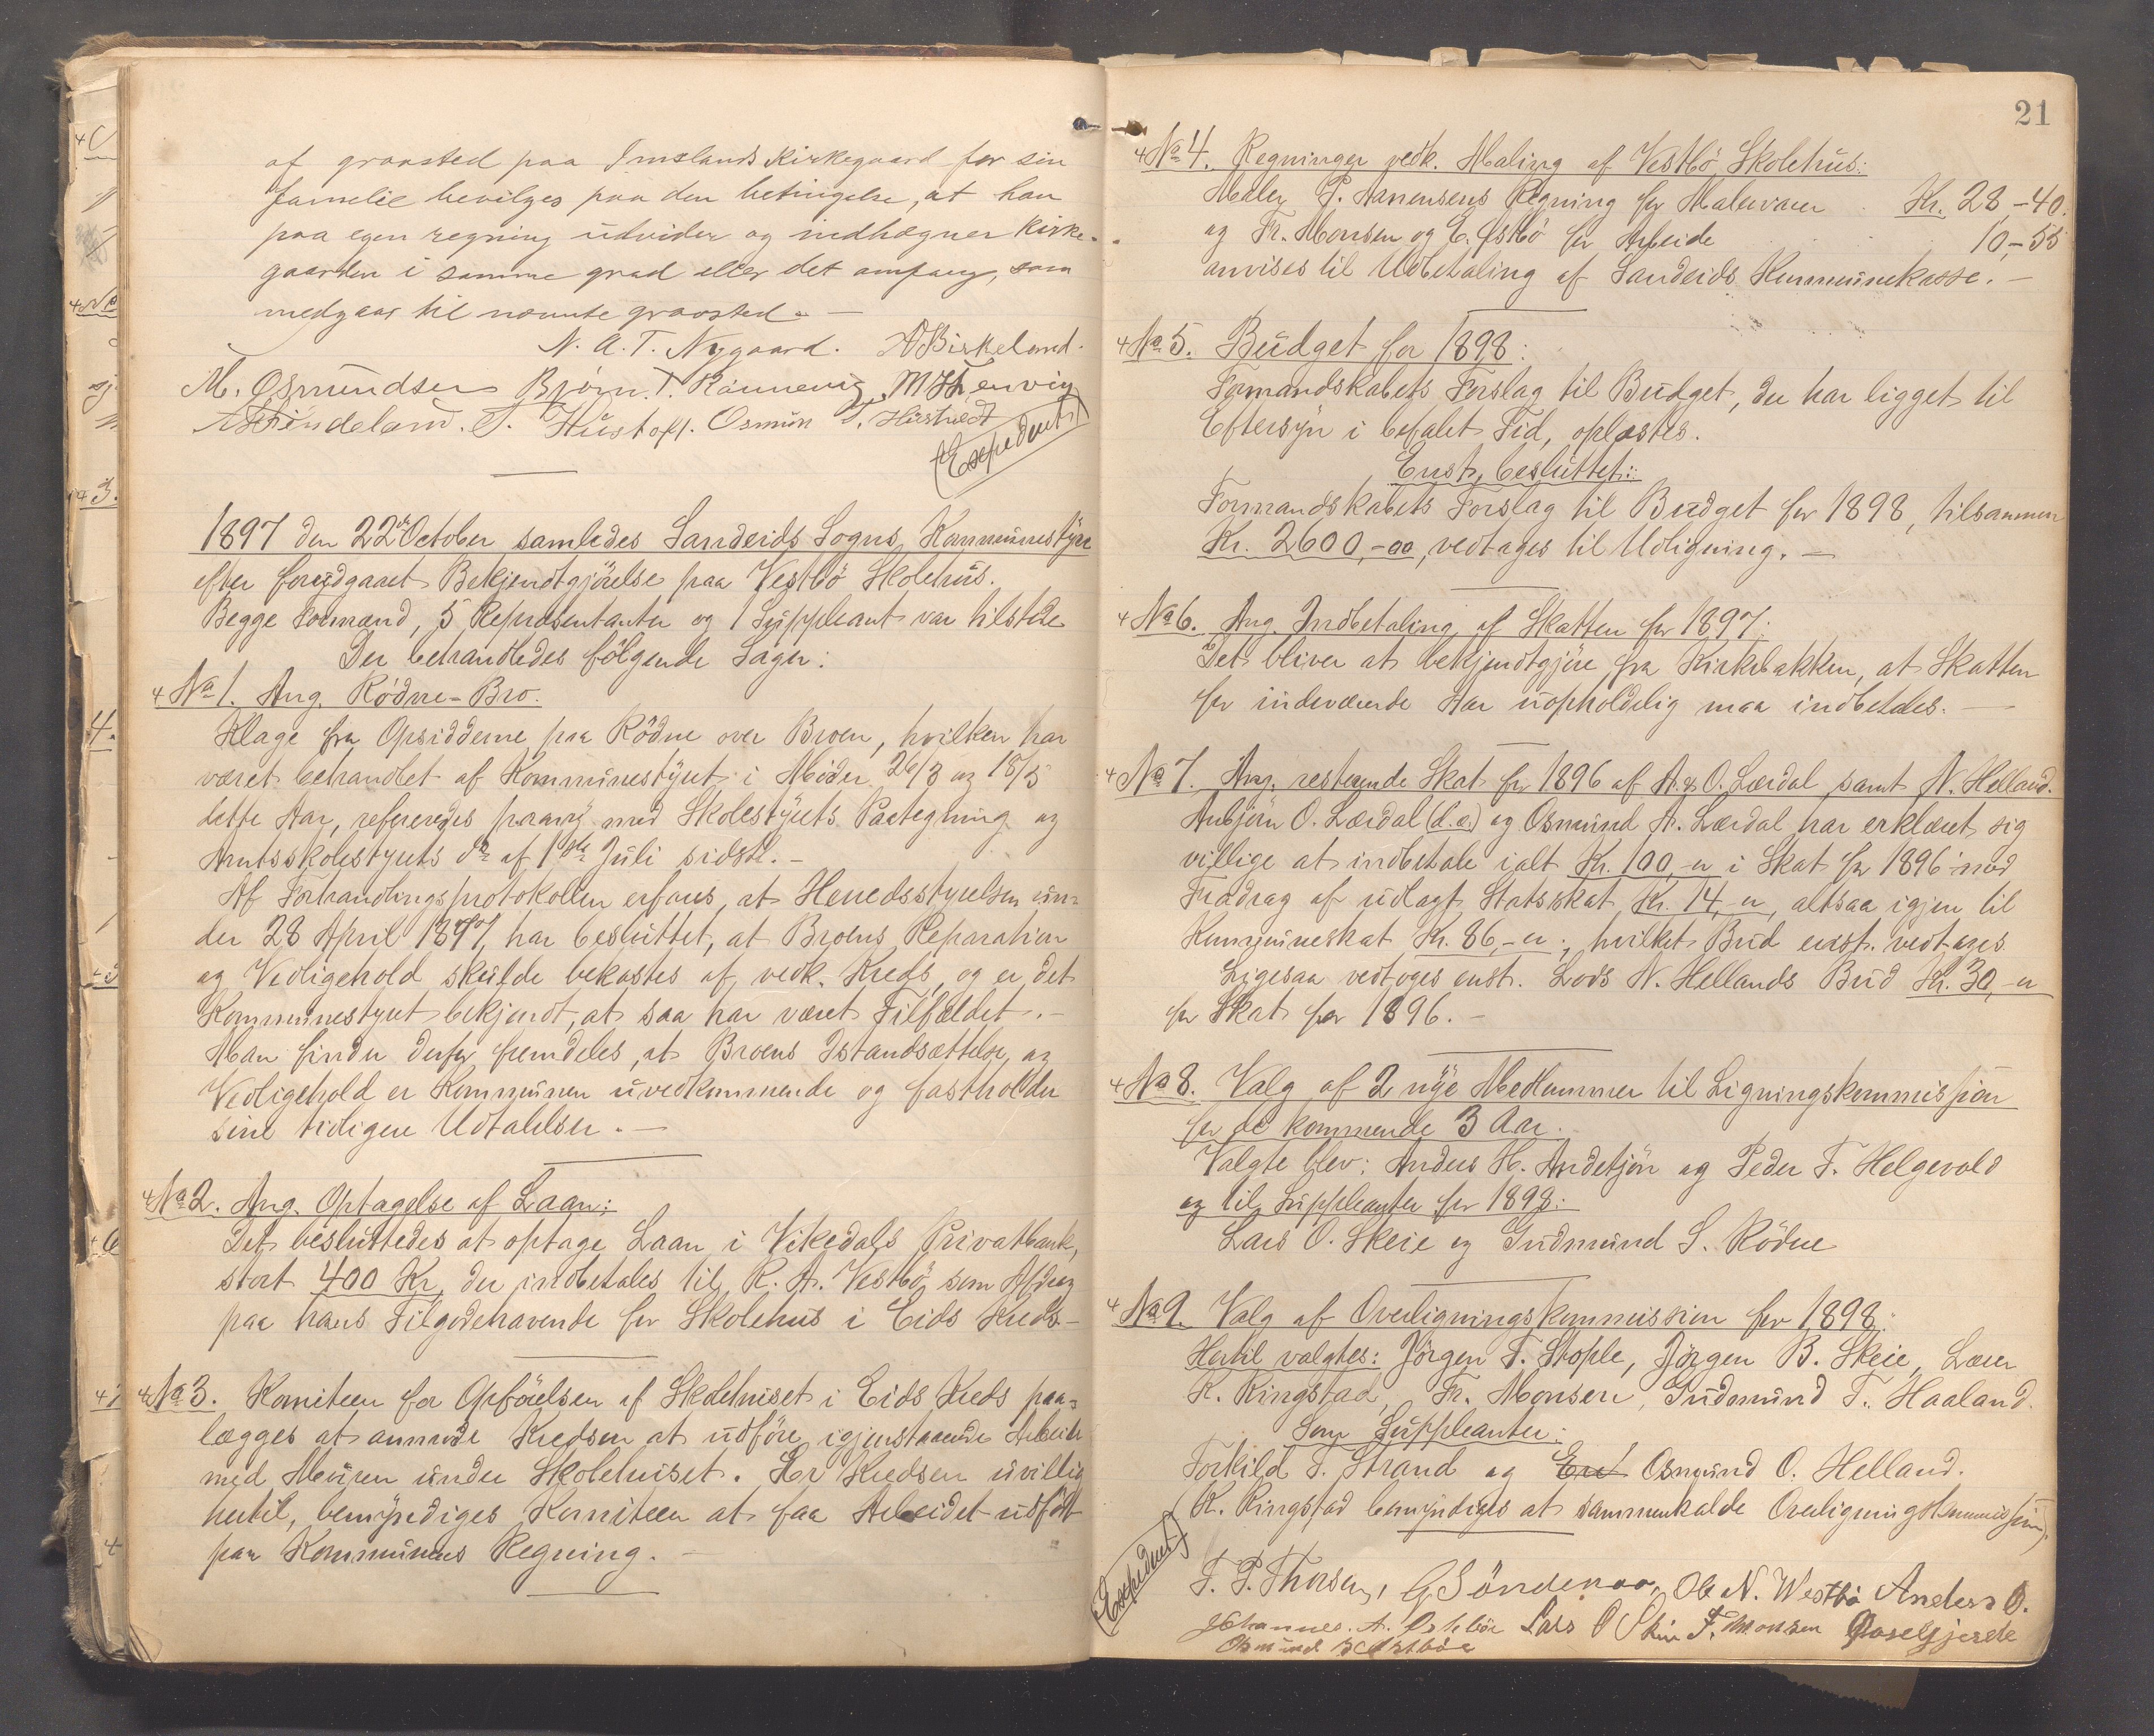 af gravsted paa Imslands Kirkegaard for sin
familie bevilges paa den betingelse, at han
paa egen regning udvider og indhegner kirke-
gaarden i samme grad eller det omfang, som
medgaar til nævnte gravsted. —
N. A. T. Nygaard. A Birkeland.
M. Osmundsen Bjørn T. Rønnevig
S. Hustoft. Osmun T. Hustvedt
(Expedert)
1897 den 22de October samledes Sandeids Sogns Kommunestyre
efter forudgaaet Bekjendtgjörelse paa Vestbö Skolehus.
Begge Formænd, 5 Repræsentanter og 1 Suppleant var tilstede
Der behandledes fölgende Sager:
No 1. Ang. Rödne-Bro.
Klage fra Opsidderne paa Rödne over Broen, hvilken har
været behandlet af Kommunestyret i Möder 26/3 og 18/5
dette Aar, refereredes paany med Skolestyrets Paategning og
Amtsskolestyrets do af 1ste Juli sidstl. –
Af Forhandlingsprotokollen erfares, at Herredsstyrelsen un=
der 28 April 1877, har besluttet, at Broens Reparation
og Vedligehold skulde bekostes af vedk. Kreds, og er det
Kommunestyret bekjendt, at saa har været Tilfældet. –
Man finder derfor fremdeles, at Broens Istandsættelse og
Vedligehold er Kommunen uvedkommende og fastholder
sine tidligere Udtalelser. —
No 2. Ang. Optagelse af Laan:
Det besluttedes at optage Laan i Vikedals Privatbank,
stort 400 Kr, der indbetales til R. A. Vestbö som Afdrag
paa hans Tilgodehavende for Skolehus i Eids Kreds –
No 3. Komiteen for Opförelsen af Skolehuset i Eids Kreds paa=
lægges at anmode Kredsen at udföre igjenstaaende Arbeide
med Muren under Skolehuset. Er Kredsen uvillig
hertil, bemyndiges Komiteen at faa Arbeidet udfört
paa Kommunens Regning. –
21
No 4. Regninger vedk. Maling af Vestbö Skolehus:
Maler P. Hanensens Regning for Malervarer Kr. 28,-40.
og Fr. Monsen og E. Östbö for Arbeide 10,-55
anvises til Udbetaling af Sandeids Kommunekasse. –
No 5. Budget for 1898:
Formandskabets Forslag til Budget, der har ligget til
Eftersyn i befalet Tid, oplæstes.
Enst. besluttet:
Formandskabets Forslag til Budget for 1898, tilsammen
Kr. 2600,-00, vedtages til Udligning. —
No 6. Ang. Indbetaling af Skatten for 1897:
Det bliver at bekjendtgjöre fra Kirkebakken, at Skatten
for indeværende Aar uopholdelig maa indbetales. —
No 7. Ang. resterende Skat for 1896 af A. & O. Lærdal samt N. Helland.
Anbjörn O. Lærdal (d.æ.) og Osmund A. Lærdal har erklæret sig
villige at indbetale ialt Kr. 100,-u i Skat for 1896 med
Fradrag af udlagt Statsskat Kr. 14,-u, altsaa igjen til
Kommuneskat Kr. 86,-u; hvilket Bud enst. vedtages
Ligesaa vedtoges enst. Lods N. Hellands Bud Kr. 30,-u
for Skat for 1896. –
No 8. Valg af 2 nye Medlemmer til Ligningskommissjon
for de kommende 3 Aar.
Valgte blev: Anders H. Andetjön og Peder T. Helgevold
og til Suppleanter for 1898:
Lars O. Skeie og Gudmund S. Rödne
No 9. Valg af Overligningskommission for 1898:
Hertil valgtes: Jörgen T. Stople, Jörgen B. Skeie, Lærer
K. Ringstad, Fr. Monsen, Gudmund T. Haaland.
Som Suppleanter:
Torkild T. Strand og Osmund O. Helland.
K. Ringstad bemyndiges at sammenkalde Overligningskommissjon.
(Expedert)
T. P. Thorsen, G Söndenaa, Ole N. Westbö Anders O.
Johannes. A. Östeböe Lars O Skeie F. Monsen Gaaselgjerde
Osmund Östböe